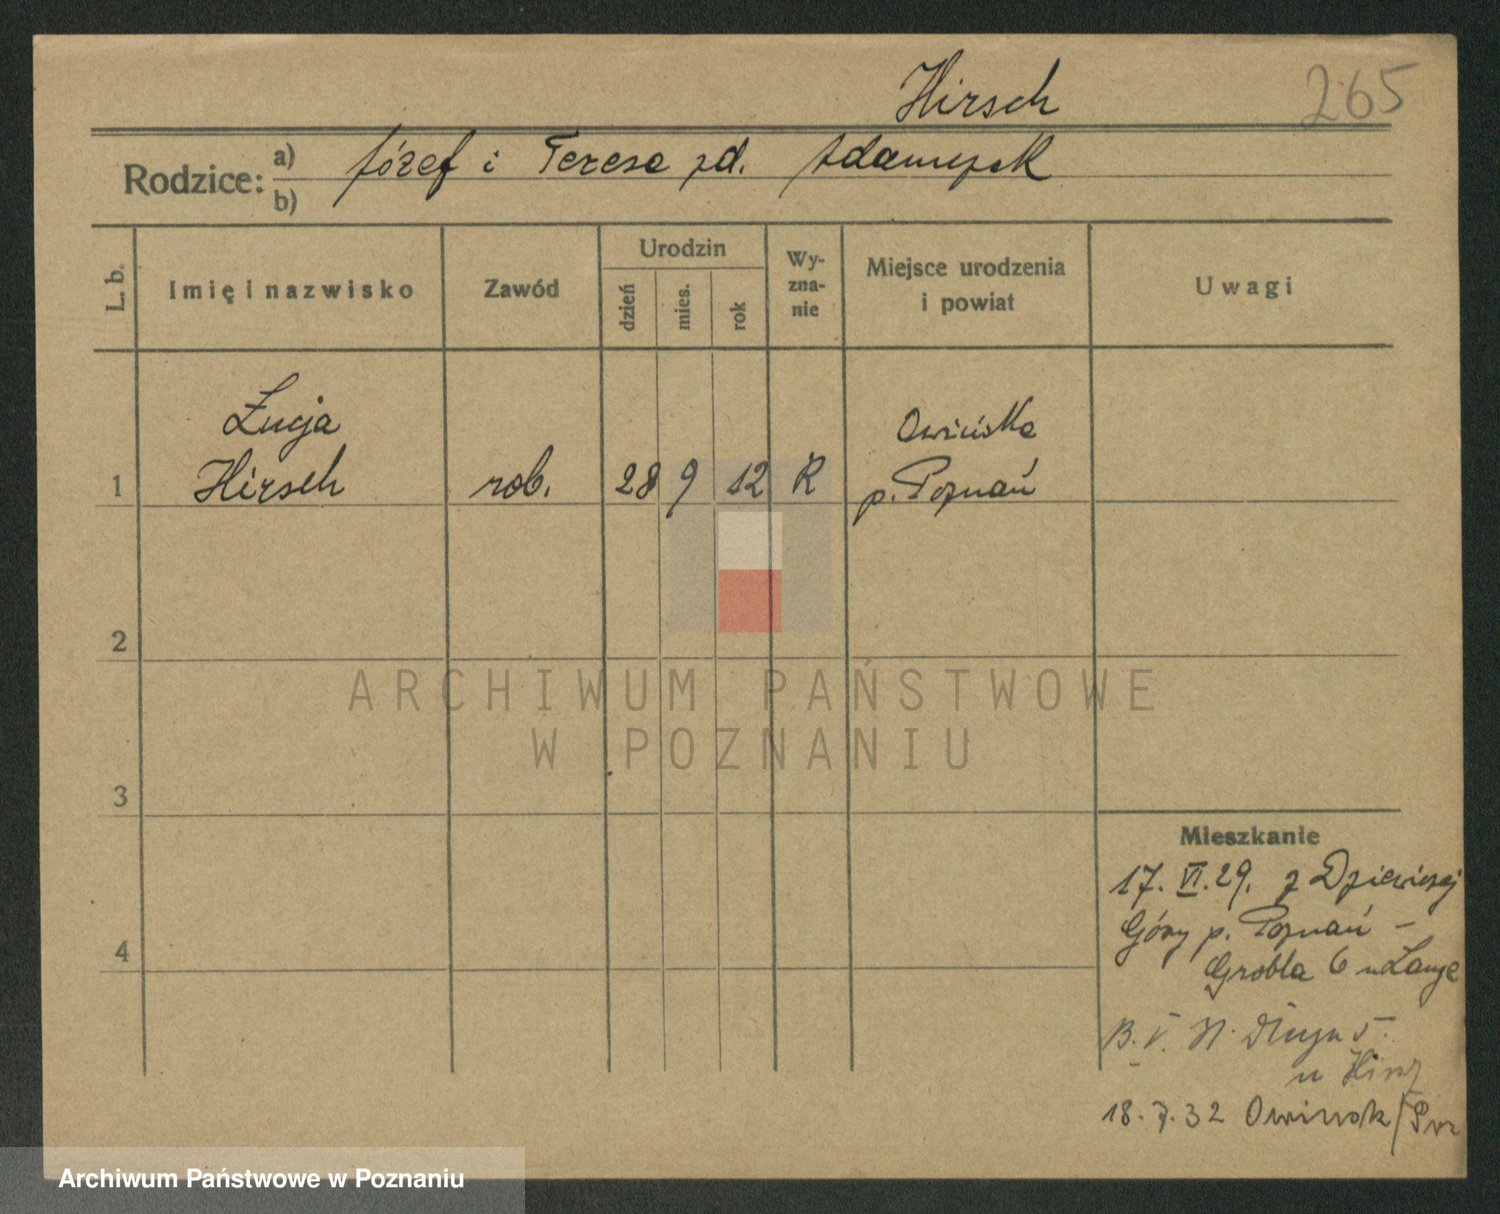 Hirsch
265
Rodzice: a) Józef i Teresa zd. Adamczak
b)
L. b.
Imię i nazwisko
Zawód
Urodzin
dzień
mies.
rok
Wy-
zna-
nie
Miejsce urodzenia
i powiat
Uwagi
Łucja
Hirsch
rob.
28 9 12 R
Owińska
p. Poznań
1
2
3
4
ARCHIWUM PAŃSTWOWE
W POZNANIU
Mieszkanie
17. VI. 29. z Dziewiczej
Góry p. Poznań –
Grobla 6 u Lange
Długa 5
u
18. 32
Archiwum Państwowe w Poznaniu